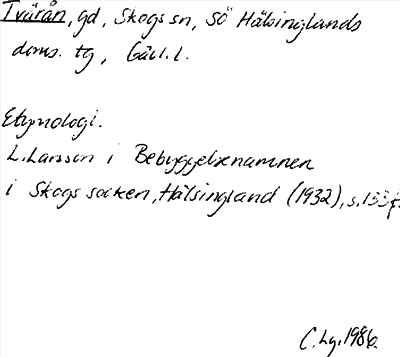 Tvärån, gd, Skogs sn, SÖ Hälsinglands
doms. tg, Gävl. l.
Etymologi.
L. Larsson i Bebyggelsenamnen
i Skogs socken, Hälsingland (1932), s. 133 f.
C. Lg. 1986.